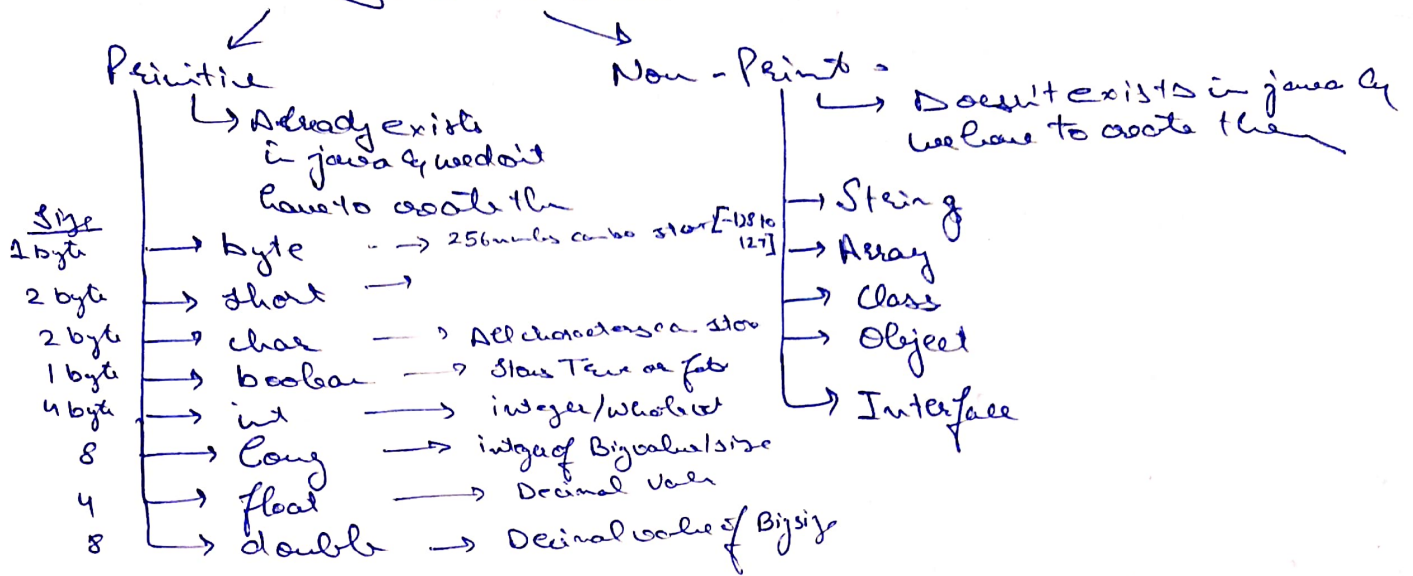 Primitive
↳ Already exists
in java & we don't
have to create the
Size
1 byte → byte → 256 numbers can be stor [-128 to
127]
2 byte → short →
2 byte → char → All characters ca. stor
1 byte → boolean → Stores True or fals
4 byte → int → integer/whole
8 → long → integer of Big value/size
4 → float → Decimal Valu
8 → double → Decimal value of Big size
Non - Primt.
↳ Doesn't exists in java &
we have to create them
→ String
→ Array
→ Class
→ Object
→ Interface